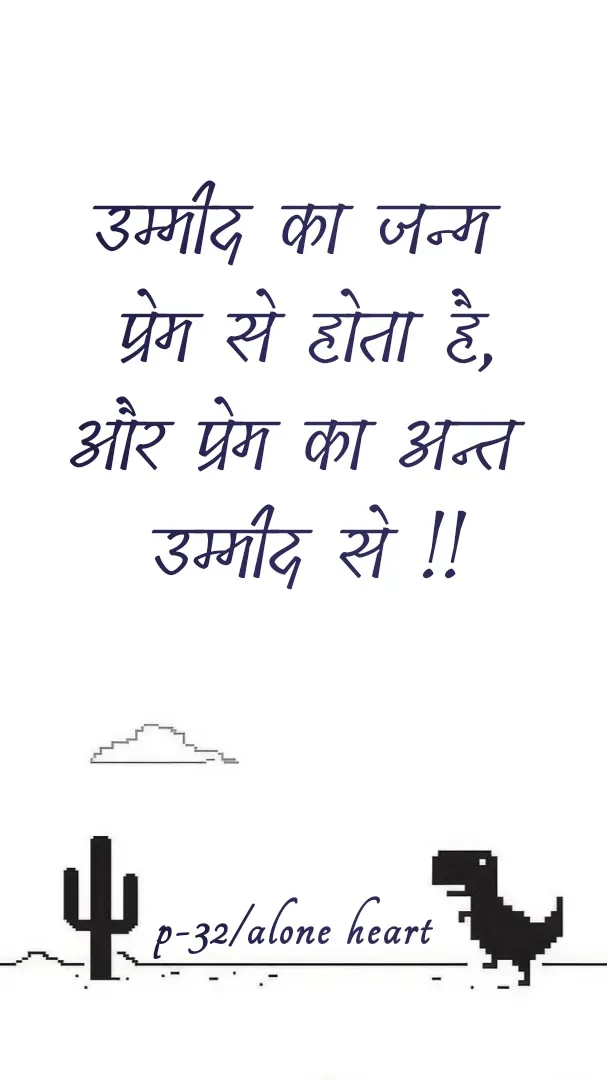 उम्मीद का जन्म
प्रेम से होता है,
और प्रेम का अन्त
उम्मीद से !!
p-32/alone heart